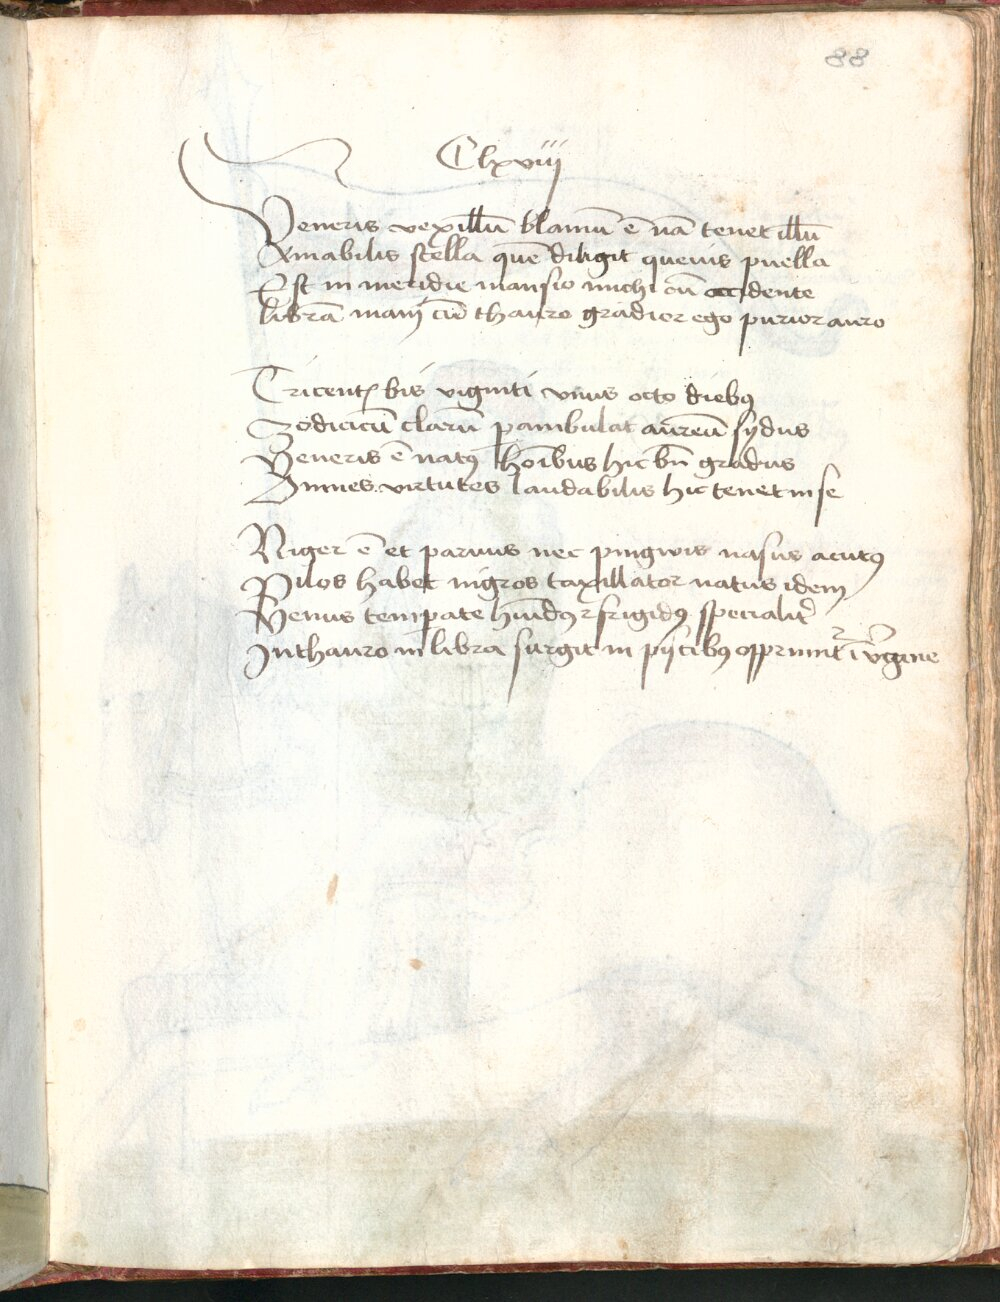 88
Clxviij
Veneris vexillū blamū ē nā tenet illū
Amabilis stella quē diligit quevis puella
Est in meridie mansio michi cū occidente
librā manj cū thauro gradior ego purior auro
Tricentꝭ bis viginti vnus octo diebꝰ
Zodiacū clarū pambulat aureū sydus
Veneris ē natꝰ hoībus hic bn̄ gradus
Omnes virtutes laudabilis hic tenet in se
Niger ē et parvus nec pingwis nasus acutꝰ
Pilos habet nigros taxillator natus idem
Venus temꝑate hūidꝰ ⁊ frigidꝰ specialit᷑
In thauro in libra surgit in pijscibꝰ opprimit᷑ ī v᷑gine